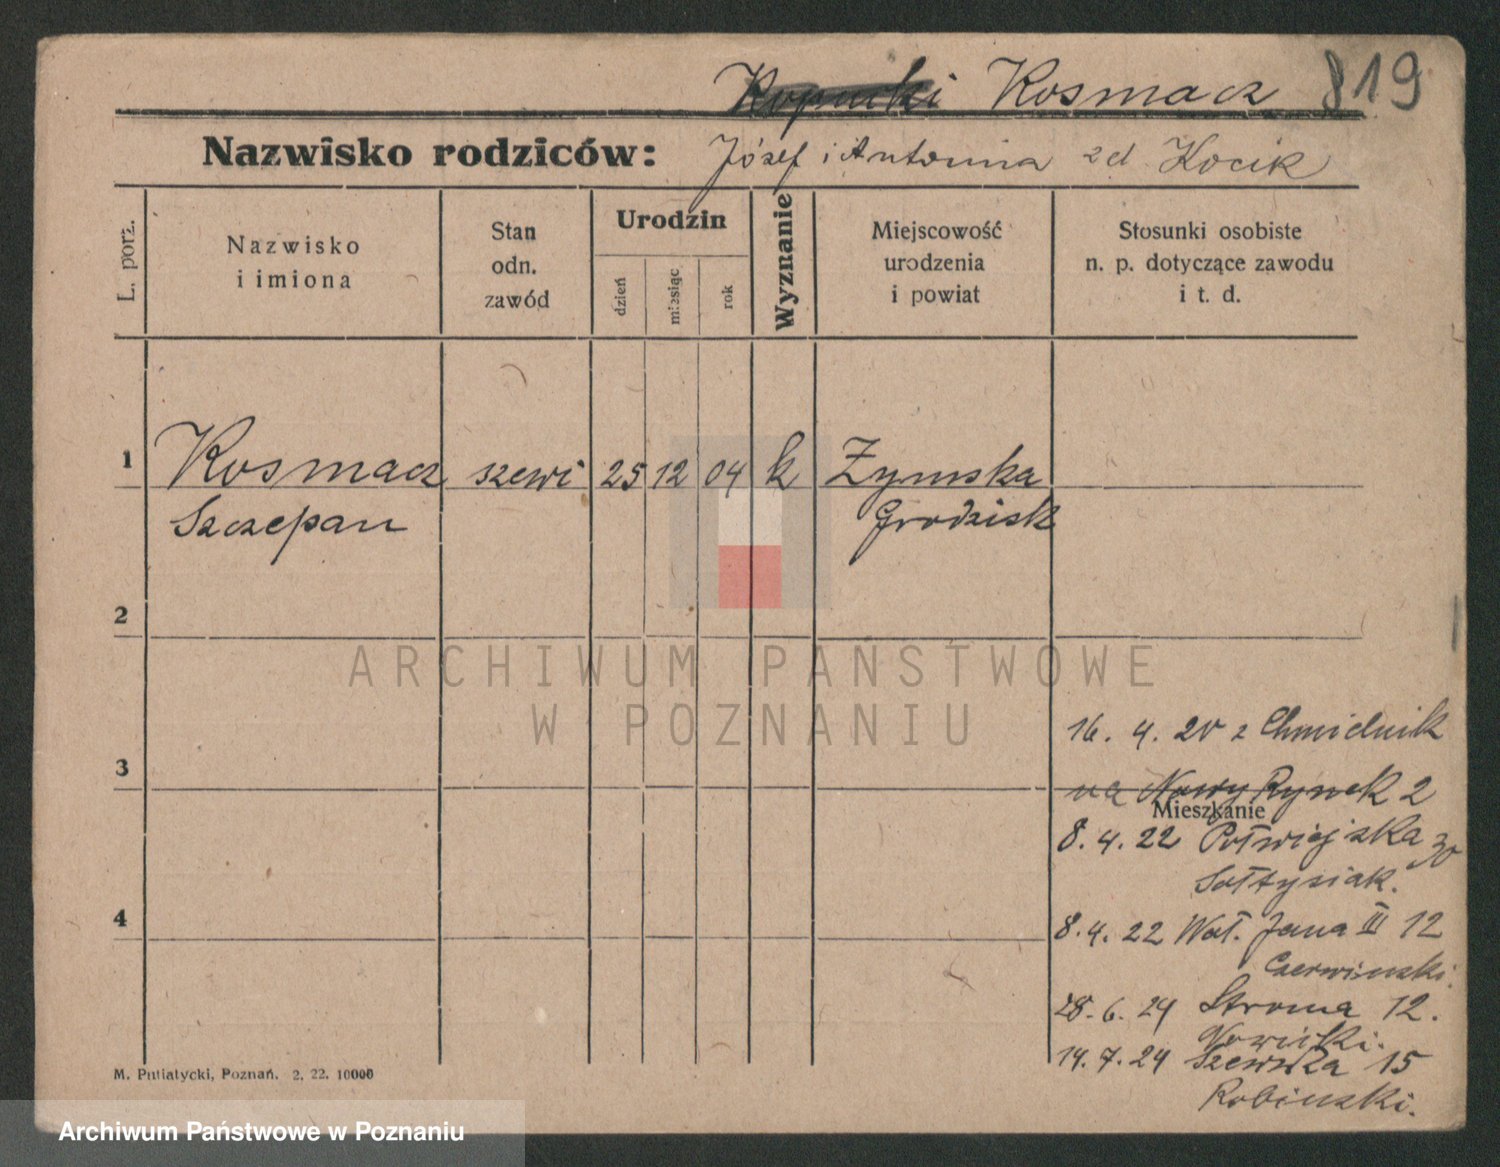 Kosmacz 819
Nazwisko rodziców: Józef i Antonina zd Kocik
L. porz.
Nazwisko
i imiona
Stan
odn.
zawód
Urodzin
dzień
miesiąc
rok
Wyznanie
Miejscowość
urodzenia
i powiat
Stosunki osobiste
n. p. dotyczące zawodu
i t. d.
1 Kosmacz szewc 25 12 04 k
Szczepan Grodzisk
2
ARCHIWUM PAŃSTWOWE
W POZNANIU
16. 4. 20 z Chmielnik
3
na Nowy Rynek 2
Mieszkanie
8. 4. 22 Półwiejska 30
Sołtysiak.
4
8. 4. 22 Wał. Jana III 12
Czerwinski.
28. 6. 24 Stroma 12.
Nowicki.
14. 7. 24 Szewska 15
Robinski.
M. Putiatycki, Poznań. 2, 22. 10000
Archiwum Państwowe w Poznaniu